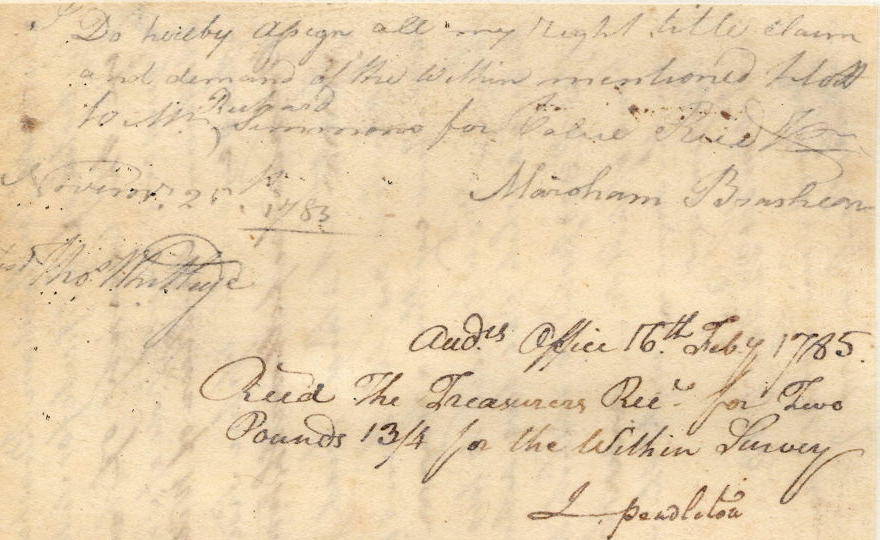 I Do hereby assign all my right title claim
and demand of the within mentioned Plott
to Mr Richard Simmons for Value Recd
Novemr. 25th 1783
Marsham Brashear
Thos
Auds. Office 16th. Feby 1785.
Recd The Treasurers Rect. for Two
Pounds 13/4 for the Within Survey
J pendleton